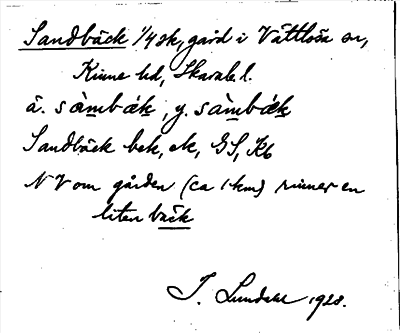 Sandbäck 1/4 sk, gård i Vättlösa sn,
Kinne hd, Skarab. l.
ä. sàmbák, y. sàmbäk
Sandbäck bek, ek, GS, Kb
NV om gården (ca 1 km) rinner en
liten bäck
J. Lundahl 1928.